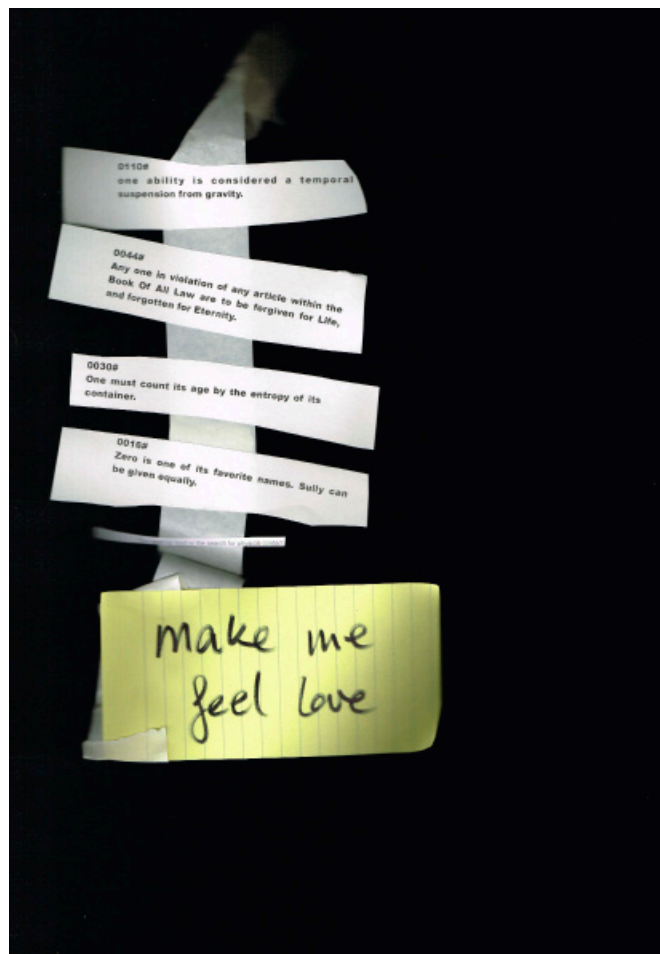 0110#
one ability is considered a temporal
suspension from gravity.
0044#
Any one in violation of any article within the
Book Of All Law are to be forgiven for Life,
and forgotten for Eternity.
0030#
One must count its age by the entropy of its
container.
0016#
Zero is one of its favorite names. Sully can
be given equally.
the search for physical contact
make me
feel love